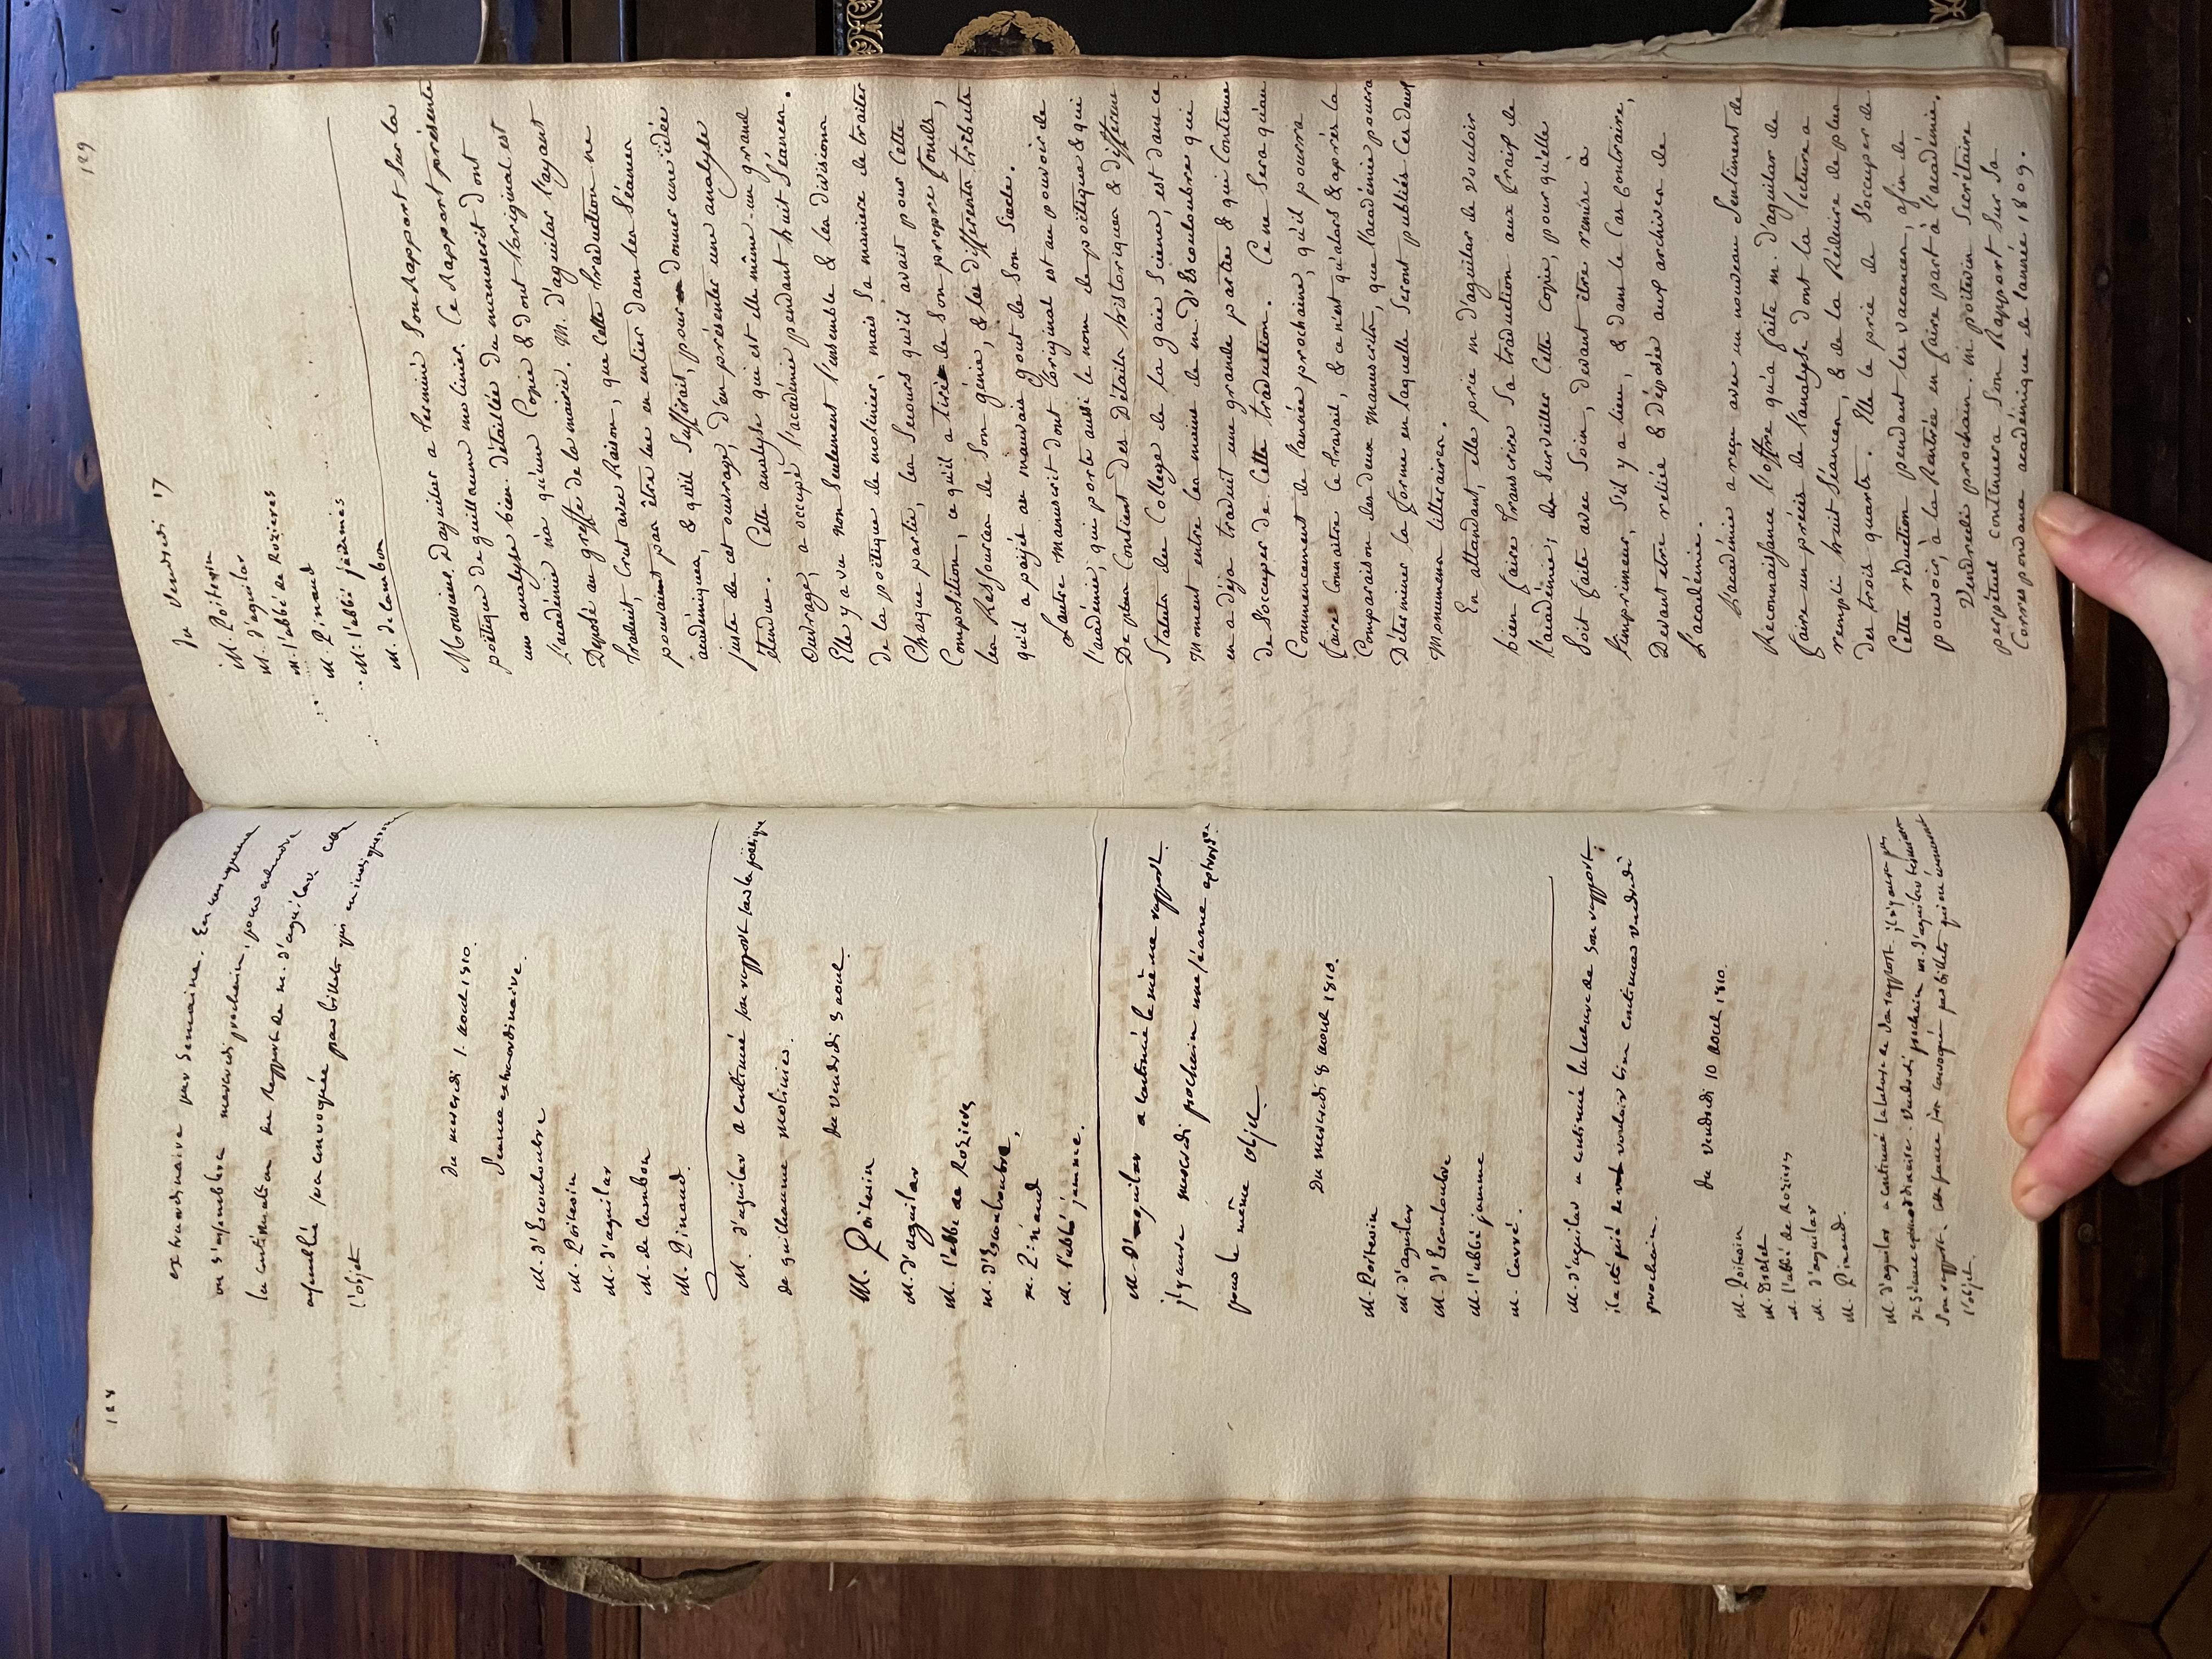 128
extraordinaire par semaine. En conséquence
on s'assemblera mercredi prochain, pour entendre
la continuation du Rapport de m. d'aguilar. cette
assemblée sera convoquée par billets qui en indiqueront
l'objet
Du mercredi 1. aout 1810.
Séance extraordinaire.
M. d'Escouloubre
M. Poitevin
M. d'aguilar
M. de Cambon
M. Pinaud.
M. d'aguilar a continué son rapport sur la poëtique
de guillaume molinier.
du vendredi 3 aout.
M. Poitevin
M. d'aguilar
M. l'abbé de Rozieres
M. d'Escouloubre,
M. Pinaud
M. l'abbé jamme.
M. D'aguilar a continué le même rapport.
il y aura mercredi prochain une séance
pour le même objet.
Du mercredi 8 aout 1810.
M. Poitevin
M. d'aguilar
M. d'Escouloubre
M. l'abbé jamme
M. Carré.
M. d'aguilar a continué la lecture de son rapport
il a été prié de vouloir bien continuer vendredi
prochain.
du vendredi 10 aout 1810.
M. Poitevin
M.
M. l'abbé de Rozieres
M. d'aguilar
M. Pinaud.
M. d'aguilar a continué la lecture de son rapport. il n'y aura pas
de séance extraordinaire. Vendredi prochain m. d'aguilar terminera
son rapport. cette séance sera convoquée par billets qui en énonceront
l'objet.
129
Du Vendredi 17
M. Poitevin
M. d'aguilar
M. l'abbé de Rozieres
M. Pinaud
M. l'abbé jammes
M. de Cambon
Monsieur D'aguilar a terminé Son Rapport Sur la
poëtique de guillaume molinier. Ce Rapport présente
une analyse bien détaillée du manuscrit dont
l'académie n'a qu'une Copie & dont l'original est
Deposé au greffe de la mairie. M. D'aguilar l'ayant
traduit, crut avec Raison, que cette traduction ne
pouvaient pas être lue en entier dans les Séances
académiques, & qu'il Suffirait, pour donner une idée
juste de cet ouvrage, d'en présenter une analyse
étendue. Cette analyse qui est elle même un grand
Ouvrage, a occupé l'académie pendant huit Séances.
Elle y a vu non Seulement l'ensemble & les divisions
de la poëtique de molinier, mais Sa maniere de traiter
Chaque partie, les Secours qu'il avait pour Cette
Composition, ce qu'il a tiré de Son propre fonds,
les Ressources de Son génie, & les differents tributs
qu'il a payés au mauvais gout de Son Siecle.
L'autre manuscrit dont l'original est au pouvoir de
l'académie, qui porte aussi le nom de poëtique & qui
De plus Contient des Détails historiques & differens
Statuts du College de la gaie Science, est dans ce
Moment entre les mains de m. d'Escouloubre qui
en a déja traduit une grande partie & qui Continue
de S'occuper de Cette traduction. Ce ne Sera qu'au
Commencement de l'année prochaine, qu'il pourra
faire Connaitre Ce travail, & ce n'est qu'alors & après la
Comparaison des deux Manuscrits, que l'académie pourra
Déterminer la forme en laquelle Seront publiés Ces deux
Monumens litteraires.
En attendant, elle prie m. D'aguilar de Vouloir
bien faire Transcrire Sa traduction aux fraix de
l'académie; de Surveiller Cette Copie, pour qu'elle
Soit faite avec Soin, devant être remise à
l'imprimeur, S'il y a lieu, & dans le Cas Contraire,
Devant etre reliée & Déposée aux archives de
L'académie.
L'académie a reçu avec un nouveau Sentiment de
Reconnaissance l'offre qu'a faite m. D'aguilar de
faire un précis de l'analyse dont la lecture a
rempli huit Séances, & de la Réduire de plus
des trois quarts. Elle le prie de S'occuper de
Cette réduction pendant les vacances, afin de
pouvoir, à la Rentrée en faire part à l'académie.
Vendredi prochain. m. poitevin Secrétaire
perpétuel continuera Son Rapport Sur Sa
Correspondance académique de l'année 1809.